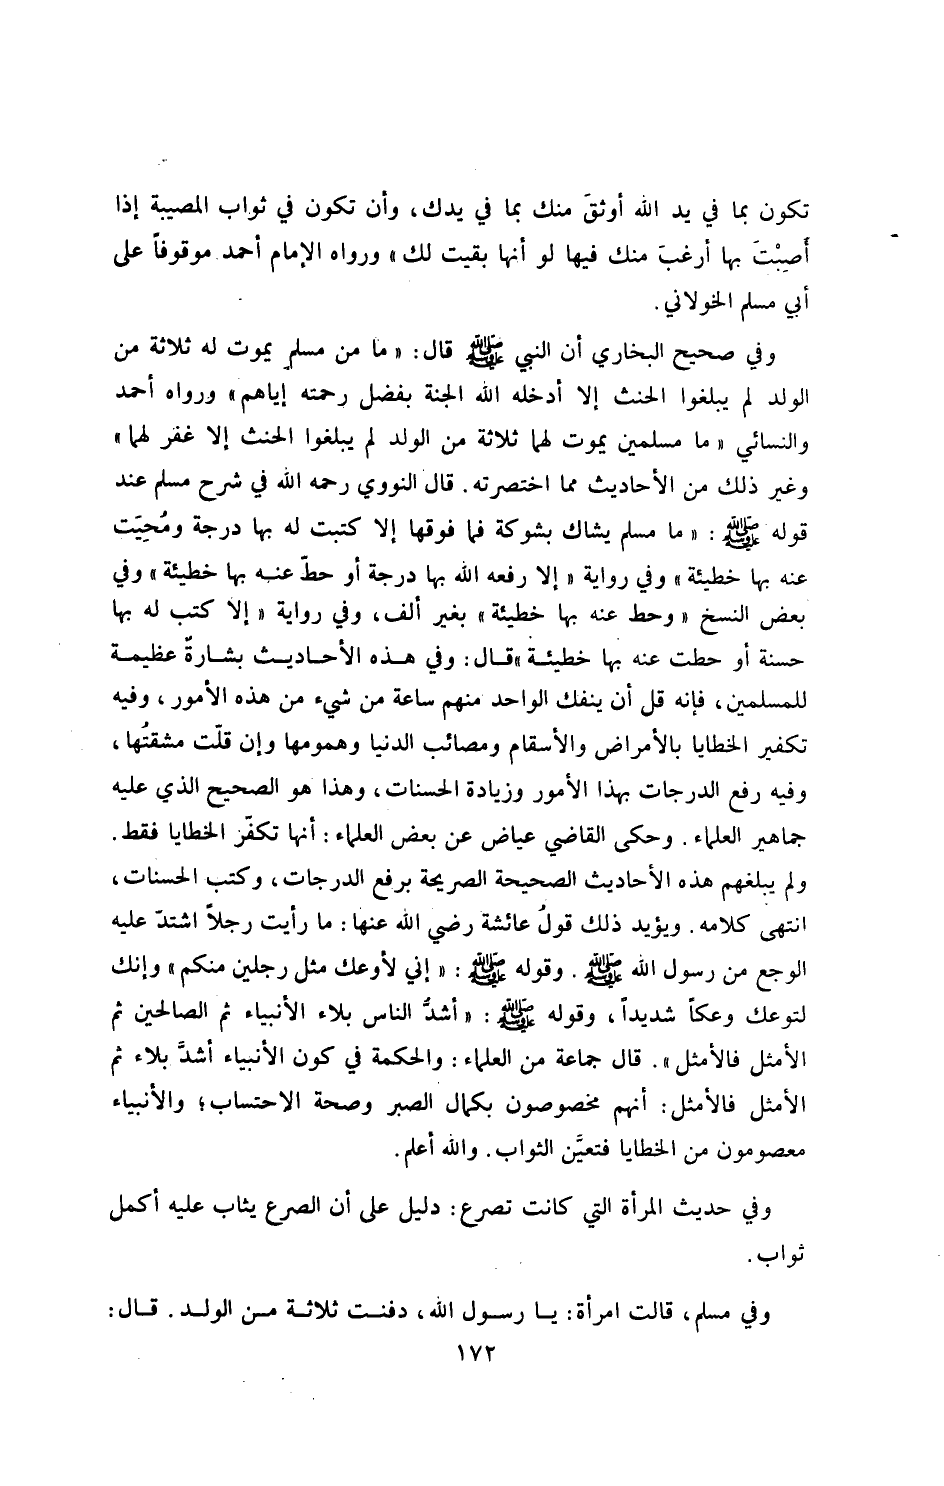 تكون بما في يد الله أوثقَ منك بما في يدك، وأن تكون في ثواب المصيبة إذا
أُصِبْتَ بها أرغبَ منك فيها لو أنها بقيت لك» ورواه الإمام أحمد موقوفاً على
أبي مسلم الخولاني.
وفي صحيح البخاري أن النبي ﷺ قال: «ما من مسلم يموت له ثلاثة من
الولد لم يبلغوا الحنث إلا أدخله الله الجنة بفضل رحمته إياهم» ورواه أحمد
والنسائي «ما مسلمين يموت لهما ثلاثة من الولد لم يبلغوا الحنث إلا غفر لهما»
وغير ذلك من الأحاديث مما اختصرته. قال النووي رحمه الله في شرح مسلم عند
قوله ﷺ: «ما مسلم يشاك بشوكة فما فوقها إلا كتبت له بها درجة ومُحِيَت
عنه بها خطيئة» وفي رواية «إلا رفعه الله بها درجة أو حطّ عنه بها خطيئة» وفي
بعض النسخ «وحط عنه بها خطيئة» بغير ألف، وفي رواية «إلا كتب له بها
حسنة أو حطت عنه بها خطيئة» قال: وفي هذه الأحاديث بشارةٌ عظيمة
للمسلمين، فإنه قل أن ينفك الواحد منهم ساعة من شيء من هذه الأمور، وفيه
تكفير الخطايا بالأمراض والأسقام ومصائب الدنيا وهمومها وإن قلّت مشقتُها،
وفيه رفع الدرجات بهذا الأمور وزيادة الحسنات، وهذا هو الصحيح الذي عليه
جماهير العلماء. وحكى القاضي عياض عن بعض العلماء: أنها تكفّر الخطايا فقط.
ولم يبلغهم هذه الأحاديث الصحيحة الصريحة برفع الدرجات، وكتب الحسنات،
انتهى كلامه. ويؤيد ذلك قولُ عائشة رضي الله عنها: ما رأيت رجلاً اشتدّ عليه
الوجع من رسول الله ﷺ. وقوله ﷺ: «إني لأوعك مثل رجلين منكم» وإنك
لتوعك وعكاً شديداً، وقوله ﷺ: «أشدُّ الناس بلاء الأنبياء ثم الصالحين ثم
الأمثل فالأمثل». قال جماعة من العلماء: والحكمة في كون الأنبياء أشدَّ بلاء ثم
الأمثل فالأمثل: أنهم مخصوصون بكمال الصبر وصحة الاحتساب؛ والأنبياء
معصومون من الخطايا فتعيَّن الثواب. والله أعلم.
وفي حديث المرأة التي كانت تصرع: دليل على أن الصرع يثاب عليه أكمل
ثواب.
وفي مسلم، قالت امرأة: يا رسول الله، دفنت ثلاثة من الولد. قال:
١٧٢